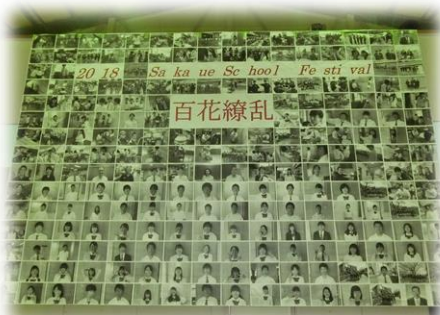 2018 Sakaue School Festival
百花繚乱